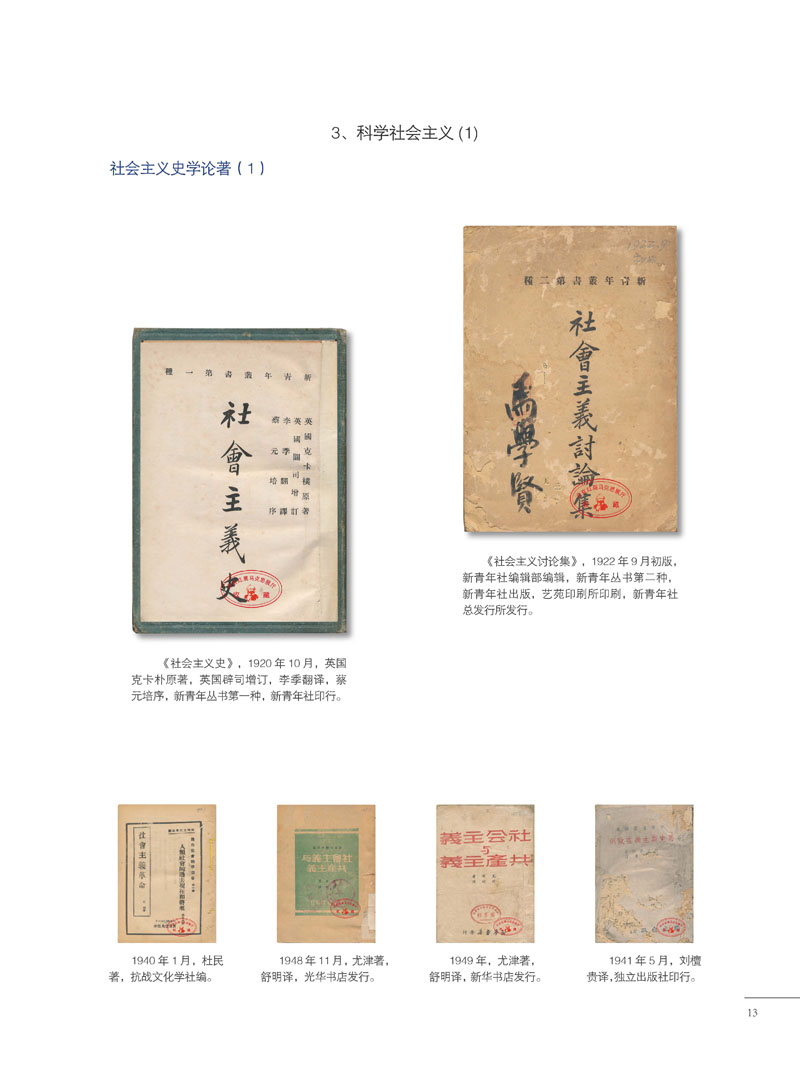 3、科学社会主义 (1)
社会主义史学论著（1）
新青年叢書第一種
英國克卡樸原著
英國闢司增訂
李季翻譯
蔡元培序
社會主義史
《社会主义史》，1920 年 10 月，英国
克卡朴原著，英国辟司增订，李季翻译，蔡
元培序，新青年丛书第一种，新青年社印行。
新青年叢書第二種
社會主義討論集
馬學賢
《社会主义讨论集》，1922 年 9 月初版，
新青年社编辑部编辑，新青年丛书第二种，
新青年社出版，艺苑印刷所印刷，新青年社
总发行所发行。
社會主義革命
1940 年 1 月，杜民
著，抗战文化学社编。
社會主義与
共産主義
1948 年 11 月，尤津著，
舒明译，光华书店发行。
社会主義
与
共産主義
1949 年，尤津著，
舒明译，新华书店发行。
1941 年 5 月，刘檀
贵译，独立出版社印行。
13